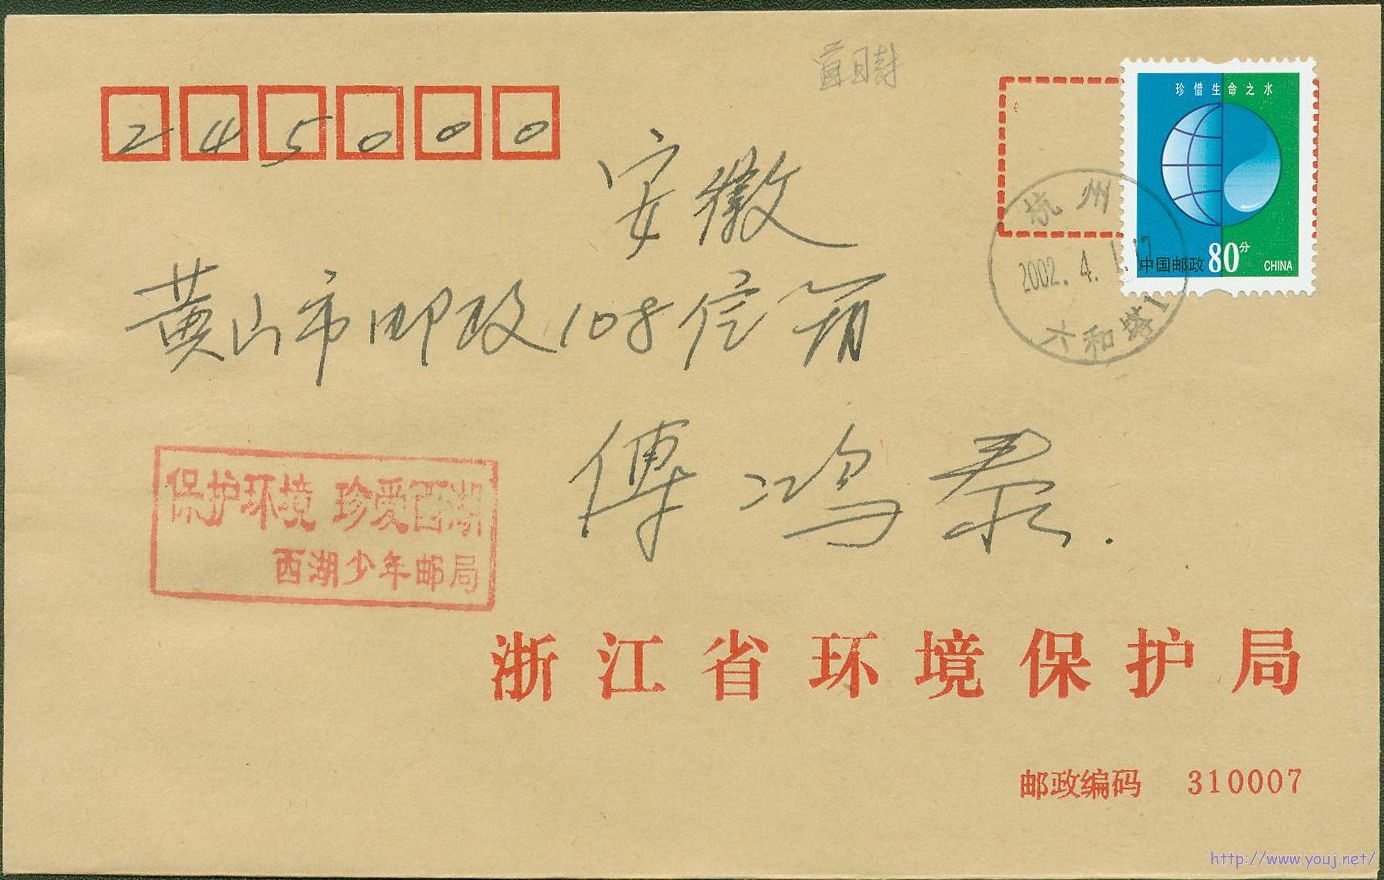 首日封
245000
安徽
黄山市邮政108信箱
傅鸿泰.
珍惜生命之水
中国邮政 80分 CHINA
杭州
2002.4.1.17
六和塔1
保护环境 珍爱西湖
西湖少年邮局
浙江省环境保护局
邮政编码 310007
http://www.youj.net/